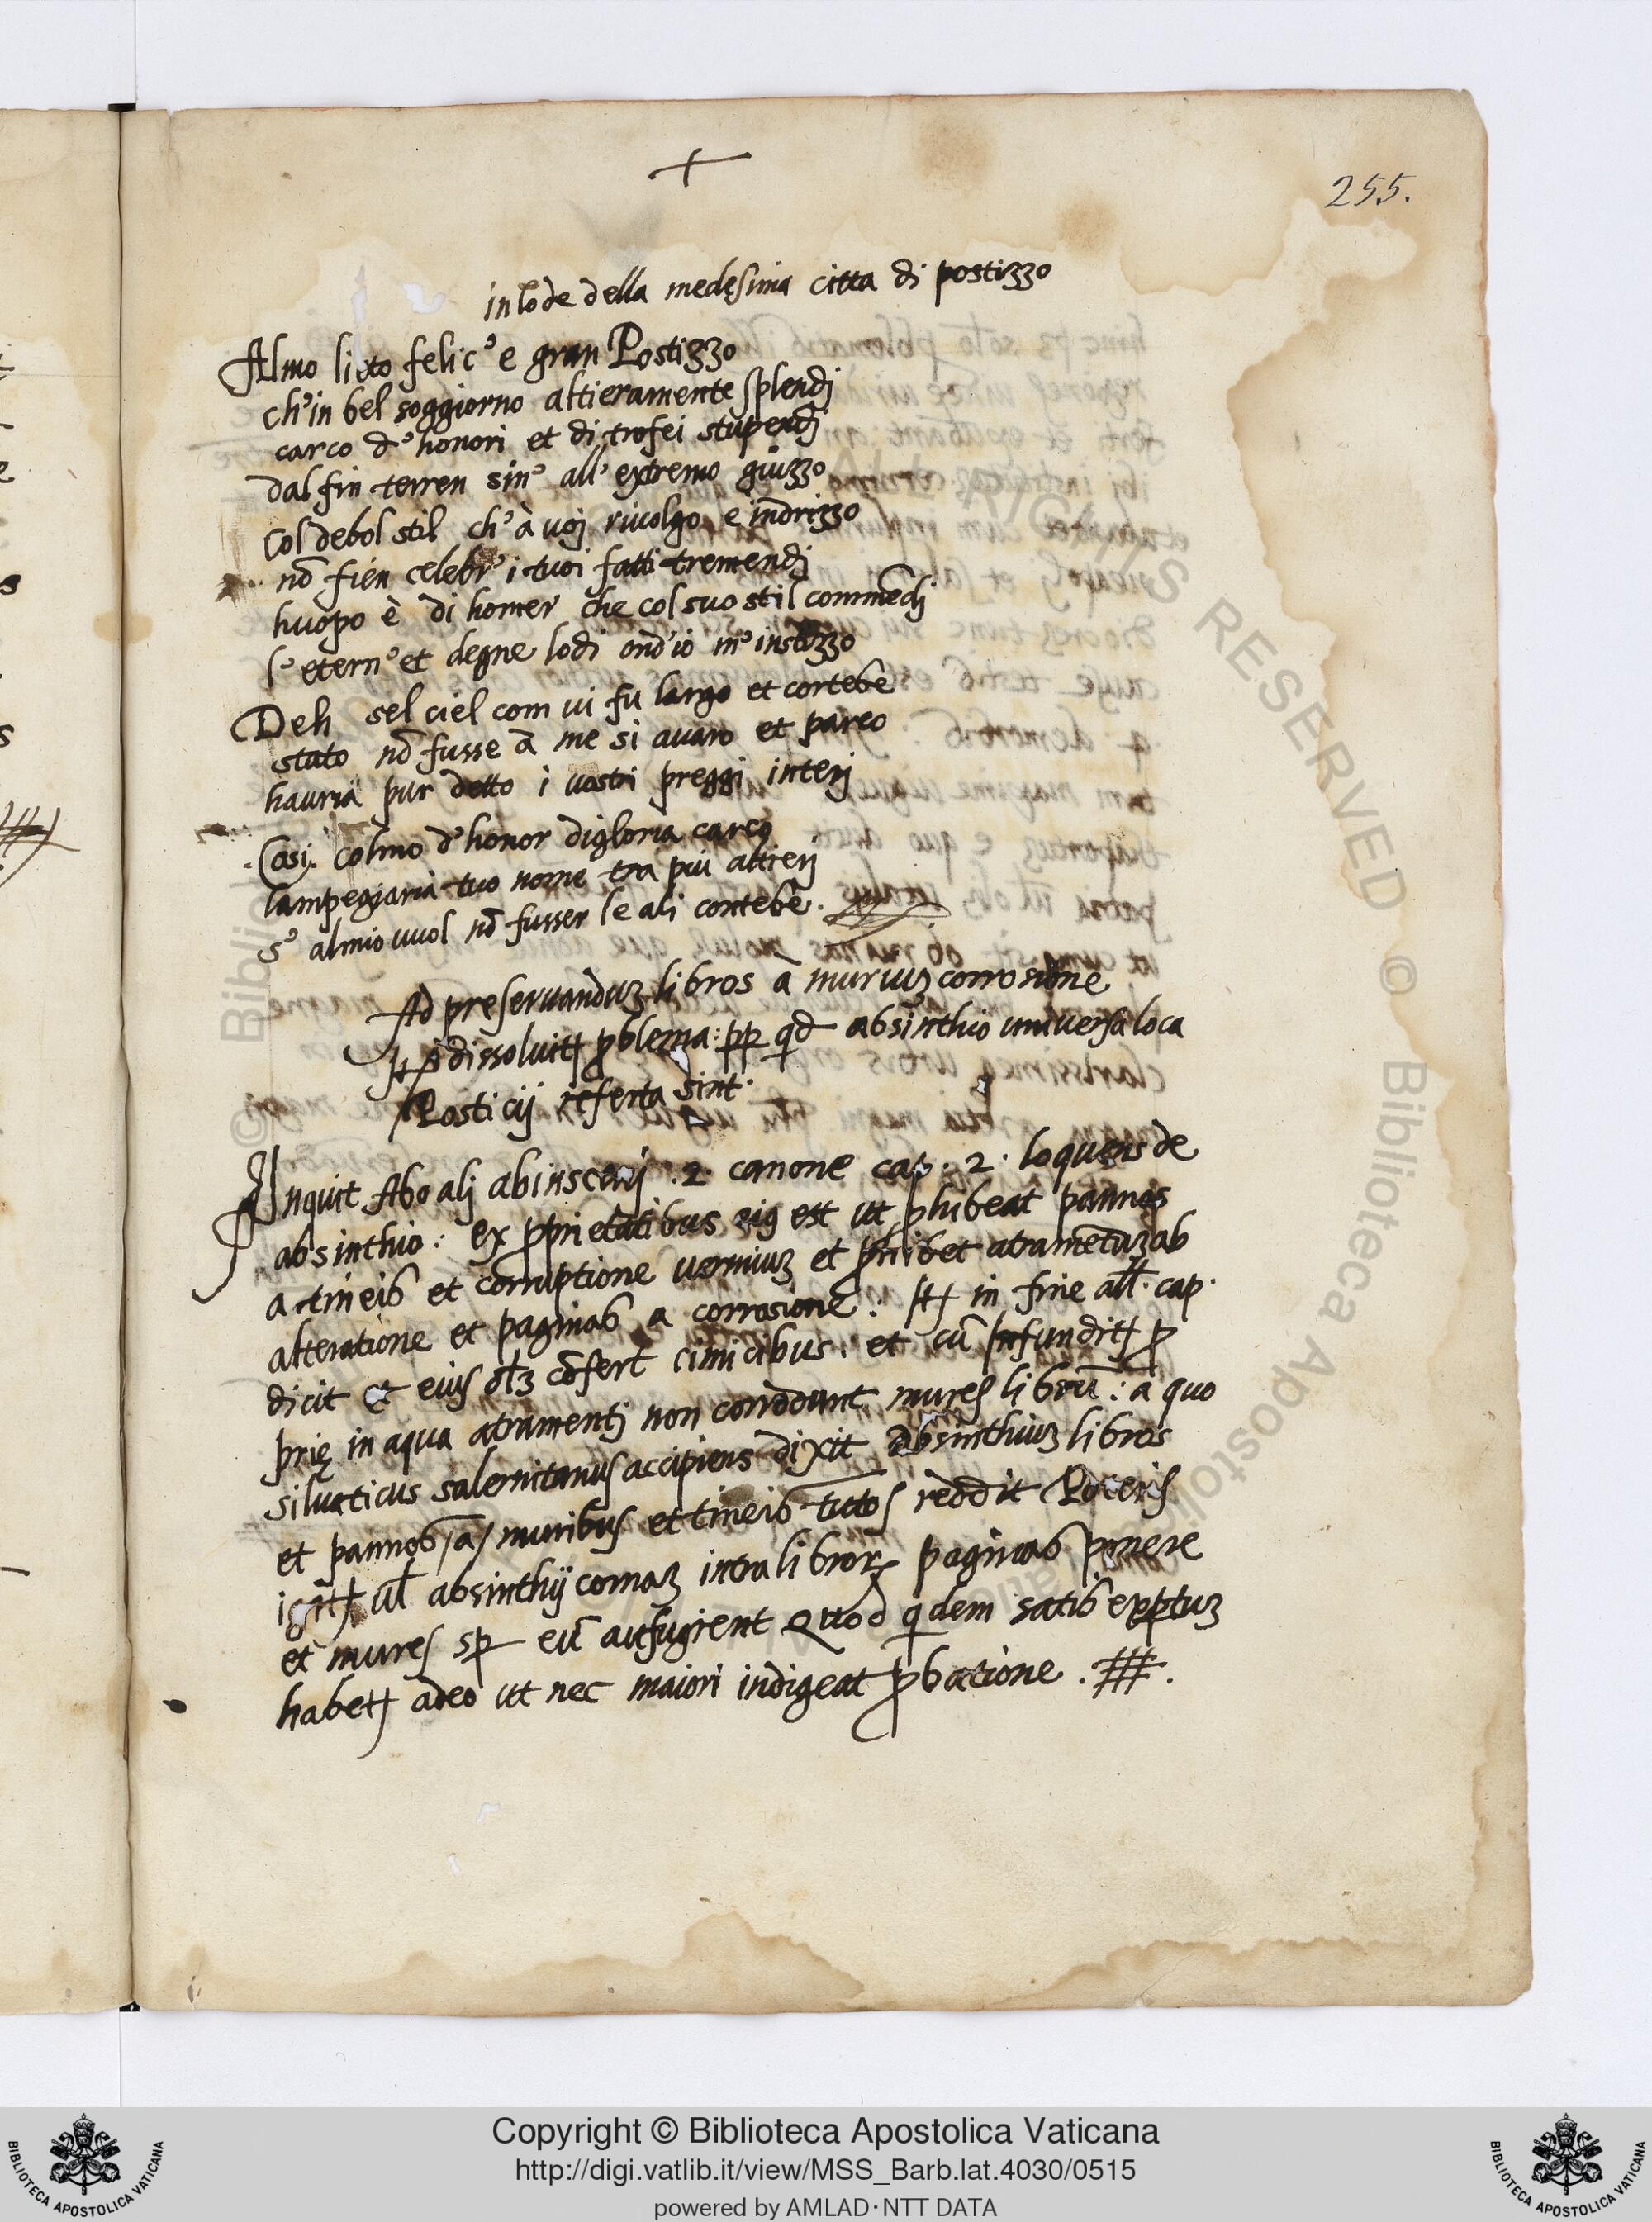 255.
in lode della medesima citta di postizzo
Almo lito felic' e gran Postizzo
ch'in bel soggiorno altieramente splendj
carco d'honori et di trofei stupendj
dal fin terren sin' all' extremo giuzzo
Col debol stil ch'à voj rivolgo e indrizzo
nō fien celebr' i tuoi fatti tremendj
huopo è di homer che col suo stil commēdj
l'etern' et degne lodi ond'io m'instizzo
Deh sel ciel com vi fu largo et cortebe
stato nō fusse a me si avaro et parco
hauria pur detto i vostri preggi interj
Cosi colmo d'honor di gloria carco
lampegiaria tuo nome tra piu altierj
s' al mio vuol nō fusser le ali contebe.
Ad preseruanduz libros a muriuz corrosione
dissoluit problema: pp qd absinthio universa loca
Posticij referta sint.
Inquit Abo alj abinscenj .2. canone cap. 2. loquens de
absinthio: ex pprietatibus eig est ut phibeat pannos
a tineis et corruptione vermiuz et phibet atrametuz ab
alteratione et paginas a corrosione: in fine all. cap.
dicit et eius cōfert cimicibus. et cū infundit p
prie in aqua atramentj non corrodunt mures librū: a quo
siluaticus salernitanus accipiens dixit absinthiuz libros
et pannos a muribus et tineis tutos reddit Poteris
absinthij comaz intra libror paginas ponere
et mures sp eū aufugient Quod qdem satis expptuz
habet adeo ut nec maiori indigeat pbatione.
© Biblioteca Apostolica Vaticana
ALL RIGHTS RESERVED
Copyright © Biblioteca Apostolica Vaticana
http://digi.vatlib.it/view/MSS_Barb.lat.4030/0515
powered by AMLAD·NTT DATA
BIBLIOTECA APOSTOLICA VATICANA
BIBLIOTECA APOSTOLICA VATICANA